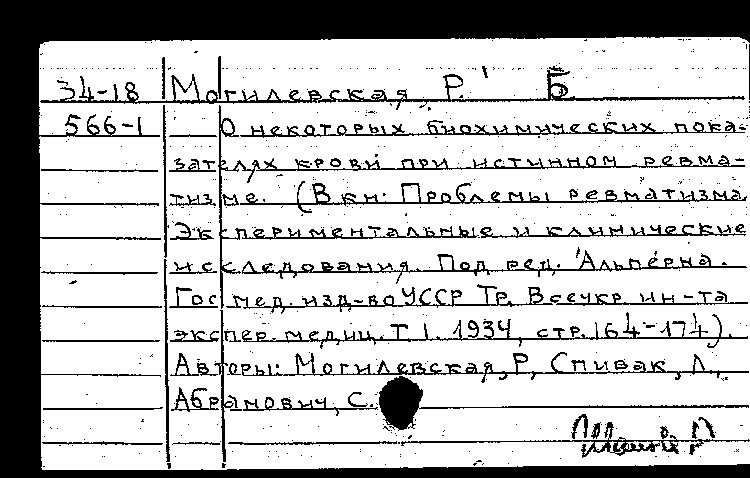 34-18 Могилевская, Р. Б
566-1 О некоторых биохимических пока-
зателях крови при истинном ревма-
тизме. (В кн: Проблемы ревматизма
Экспериментальные и клинические
исследования. Под ред. Альперна.
Госмед. изд-во УССР Тр. Всеукр. ин-та
экспер. медиц. Т. I. 1934, стр. 164-174).
Авторы: Могилевская, Р, Спивак, Л.,
Абрамович, С.